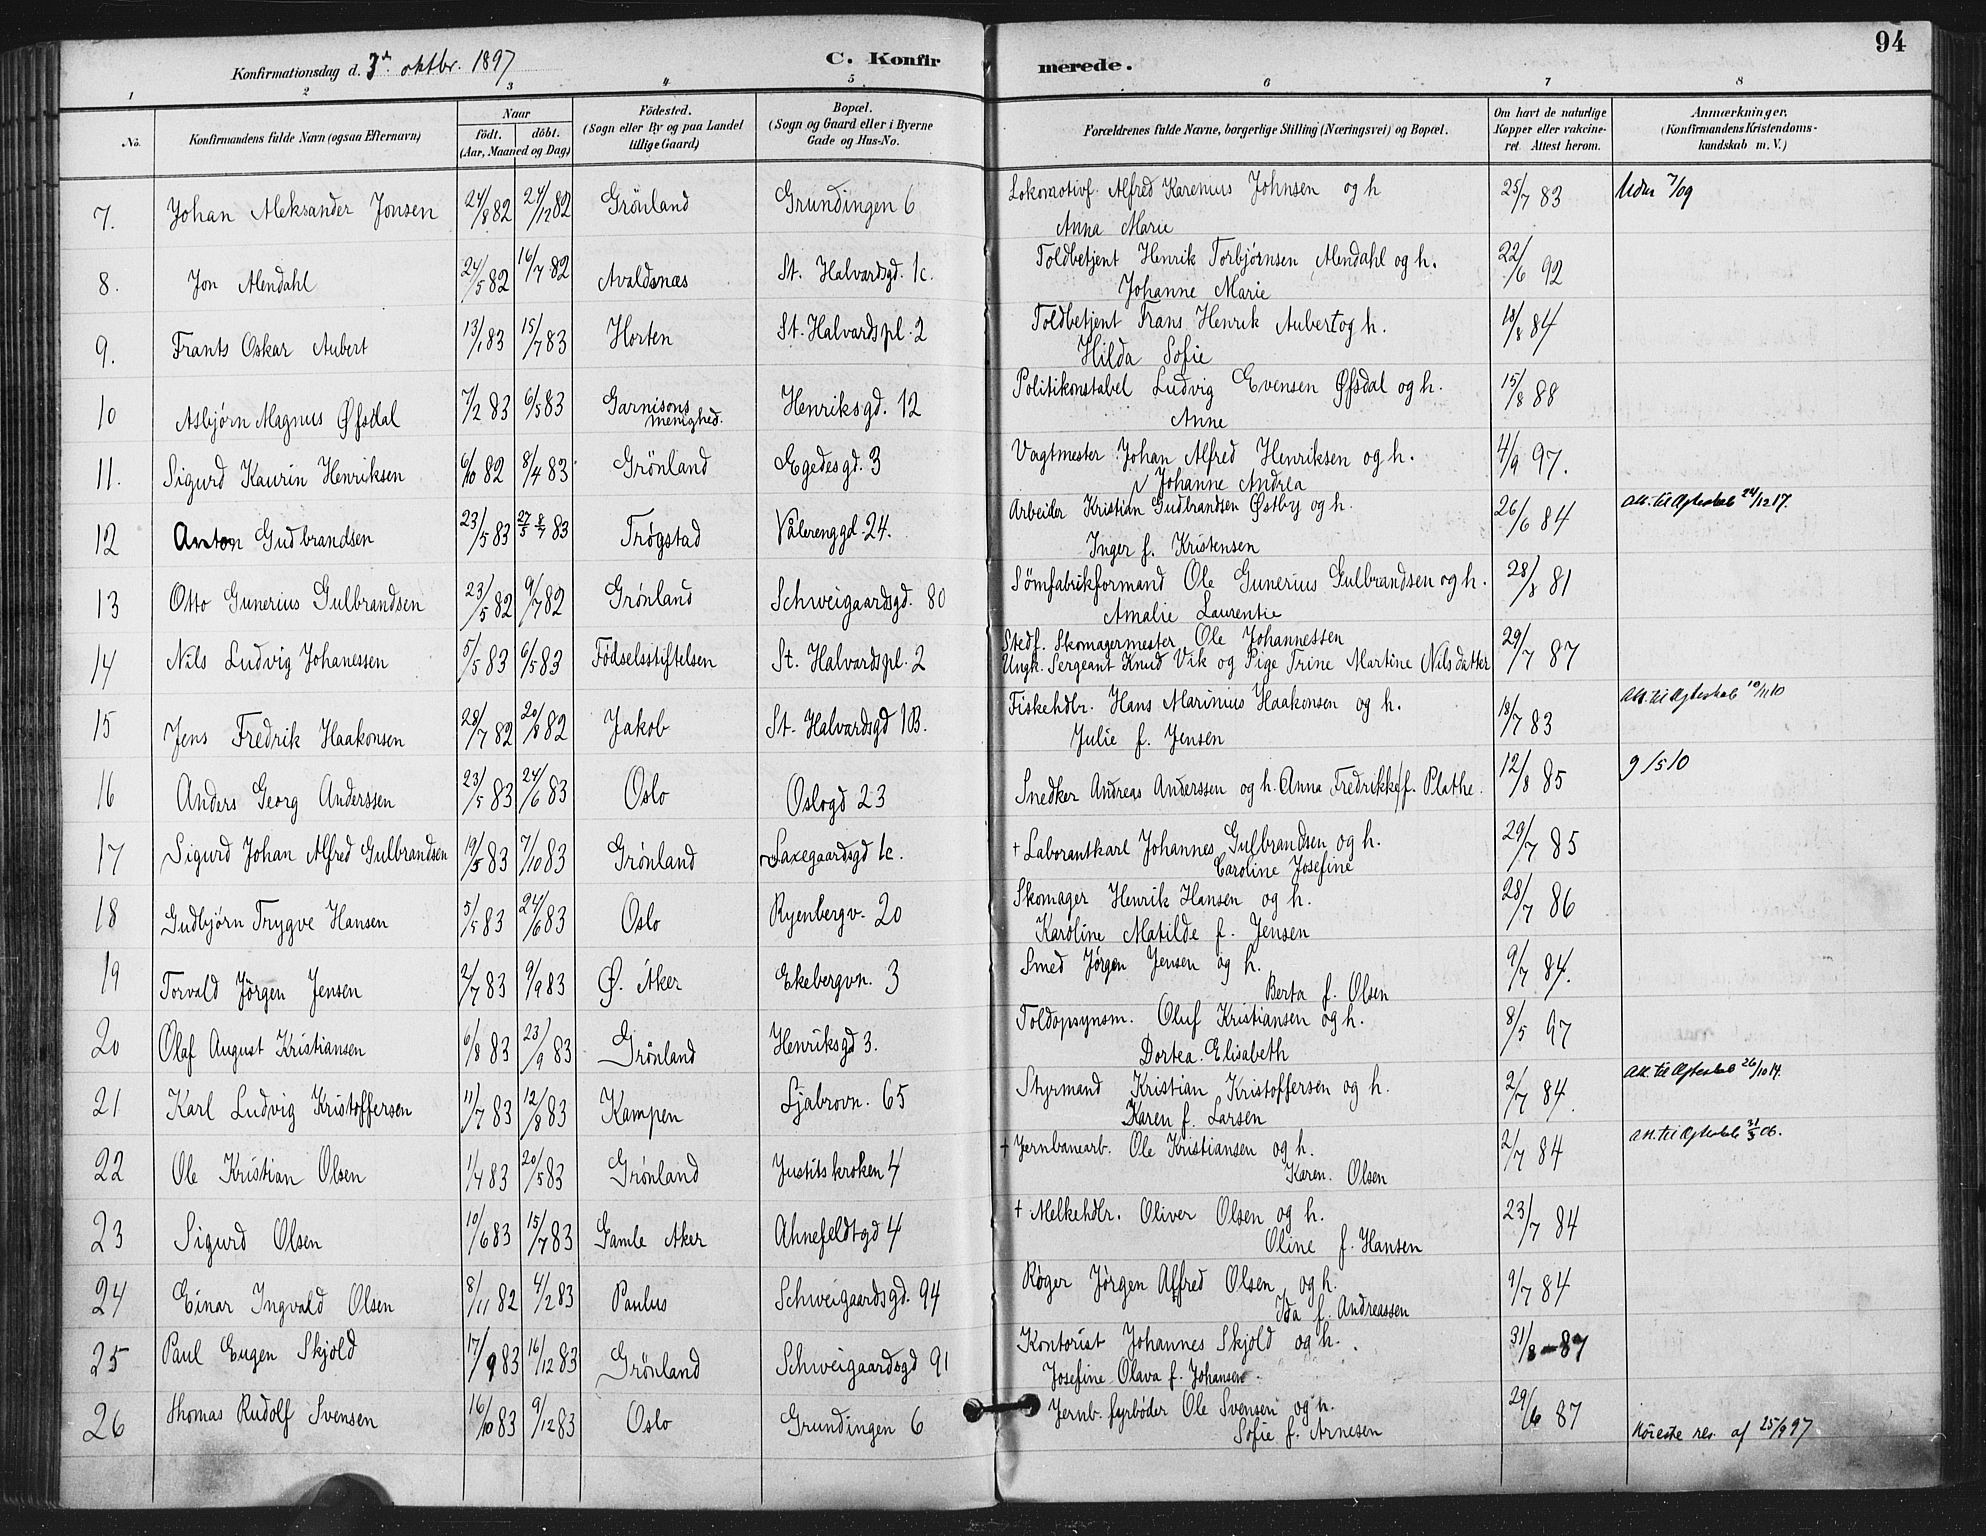 94
Konfirmationsdag d. 3die oktbr. 1897 C. Konfirmerede.
1 2 3 4 5 6 7 8
No. Konfirmandens fulde Navn (ogsaa Efternavn) Naar født. døbt. (Aar, Maaned og Dag) Fødested. (Sogn eller By og paa Landet tillige Gaard) Bopæl. (Sogn og Gaard eller i Byerne Gade og Hus-No. Forældrenes fulde Navne, borgerlige Stilling (Næringsvei) og Bopæl. Om havt de naturlige Kopper eller vakcineret. Attest herom. Anmærkninger. (Konfirmandens Kristendomskundskab m. V.)
7. Johan Aleksander Jonsen 24/8 82 24/12 82 Grönland Grundingen 6 Lokomotivf. Alfred Karenius Johnsen og h 25/7 83 Udm 7/09
Anna Marie
8. Jon Alendahl 24/5 82 16/7 82 Avaldsnæs St. Halvardsgd. 1c. Toldbetjent Henrik Torbjørnsen Alendahl og h. 22/6 92
Johanne Marie
9. Frants Oskar Aubert 13/1 83 15/7 83 Horten St. Halvards pl. 2 Toldbetjent Frans Henrik Aubert og h. 18/8 84
Hilda Sofie
10 Asbjørn Magnus Øfsdal 7/2 83 6/5 83 Garnisons menighed. Henriksgd. 12 Politikonstabel Ludvig Evensen Øfsdal og h. 15/8 88
Anne
11. Sigurd Kaurin Henriksen 6/10 82 8/4 83 Grönland Egedesgd. 3 Vagtmester Johan Alfred Henriksen og h. 4/9 97.
Johanne Andrea
12 Anton Gudbrandsen 23/5 83 27/5 8/7 83 Trøgstad Vålerenggd. 24. Arbeider Kristian Gudbrandsen Østby og h. 26/6 84 Att. til Ægteskab 24/12 17.
Inger f. Kristensen
13 Otto Gunerius Gulbrandsen 23/5 82 9/7 82 Grønland Schweigaardsgd. 80 Sömfabrikformand Ole Gunerius Gulbrandsen og h. 28/8 81
Amalie Laurentie
14 Nils Ludvig Johanessen 5/5 83 6/5 83 Födselsstiftelsen St. Halvardspl. 2 Stedf. Skomagermester Ole Johannessen 29/7 87
Ungk. Sergeant Knud Vik og Pige Trine Martine Nilsdatter
15 Jens Fredrik Haakonsen 28/7 82 20/8 82 Jakob St. Halvardsgd 1B. Fiskehdlr. Hans Marinius Haakonsen og h. 18/7 83 Att. til Ægteskab 10/11 10
Julie f. Jensen
16 Anders Georg Anderssen 23/5 83 24/6 83 Oslo Oslogd 23 Snedker Andreas Anderssen og h. Anna Fredrikke f. Plathe. 12/8 85 9/5 10
17 Sigurd Johan Alfred Gulbrandsen 19/5 83 7/10 83 Grönland Saxegaardsgd 1c. † Laborantkarl Johannes Gulbrandsen og h. 29/7 85
Caroline Josefine
18 Gudbjörn Trygve Hansen 5/5 83 24/6 83 Oslo Ryenbergv. 20 Skomager Henrik Hansen og h. 28/7 86
Karoline Matilde f. Jensen
19 Torvald Jörgen Jensen 2/7 83 9/9 83 Ø. Aker Ekebergvn. 3 Smed Jörgen Jensen og h. 9/7 84.
Berta f. Olsen
20 Olaf August Kristiansen 6/8 83 23/9 83 Grönland Henriksgd 3. Toldopsynsm. Oluf Kristiansen og h. 8/5 97
Dortea Elisabeth
21 Karl Ludvig Kristoffersen 11/7 83 12/8 83 Kampen Ljabrovn. 65 Styrmand Kristian Kristoffersen og h. 2/7 84. Att. til Ægteskab 26/10 14.
Karen f. Larsen
22 Ole Kristian Olsen 1/4 83 20/5 83 Grönland Justitskroken 4 † Jernbanearb. Ole Kristiansen og h. 2/7 84 Att. til Ægteskab 21/3 06.
Karen Olsen
23 Sigurd Olsen 10/6 83 15/7 83 Gamle Aker Ahnefeldtgd 4 † Melkehdlr. Oliver Olsen og h. 23/7 84
Oline f. Hansen
24 Einar Ingvald Olsen 8/11 82 4/2 83 Paulus Schweigaardsgd. 94 Røger Jörgen Alfred Olsen og h. 9/7 84
Ida f. Andreassen
25 Paul Eugen Skjold 17/9 83 16/12 83 Grönland Schweigaardsgd 91 Kontorist Johannes Skjold og h. 31/8 87
Josefine Olava f. Johansen
26 Thomas Rudolf Svensen 16/10 83 9/12 83 Oslo Grundingen 6 Jernb. fyrbøder Ole Svensen og h. 29/6 87
Sofie f. Arnesen
res. af 25/9 97